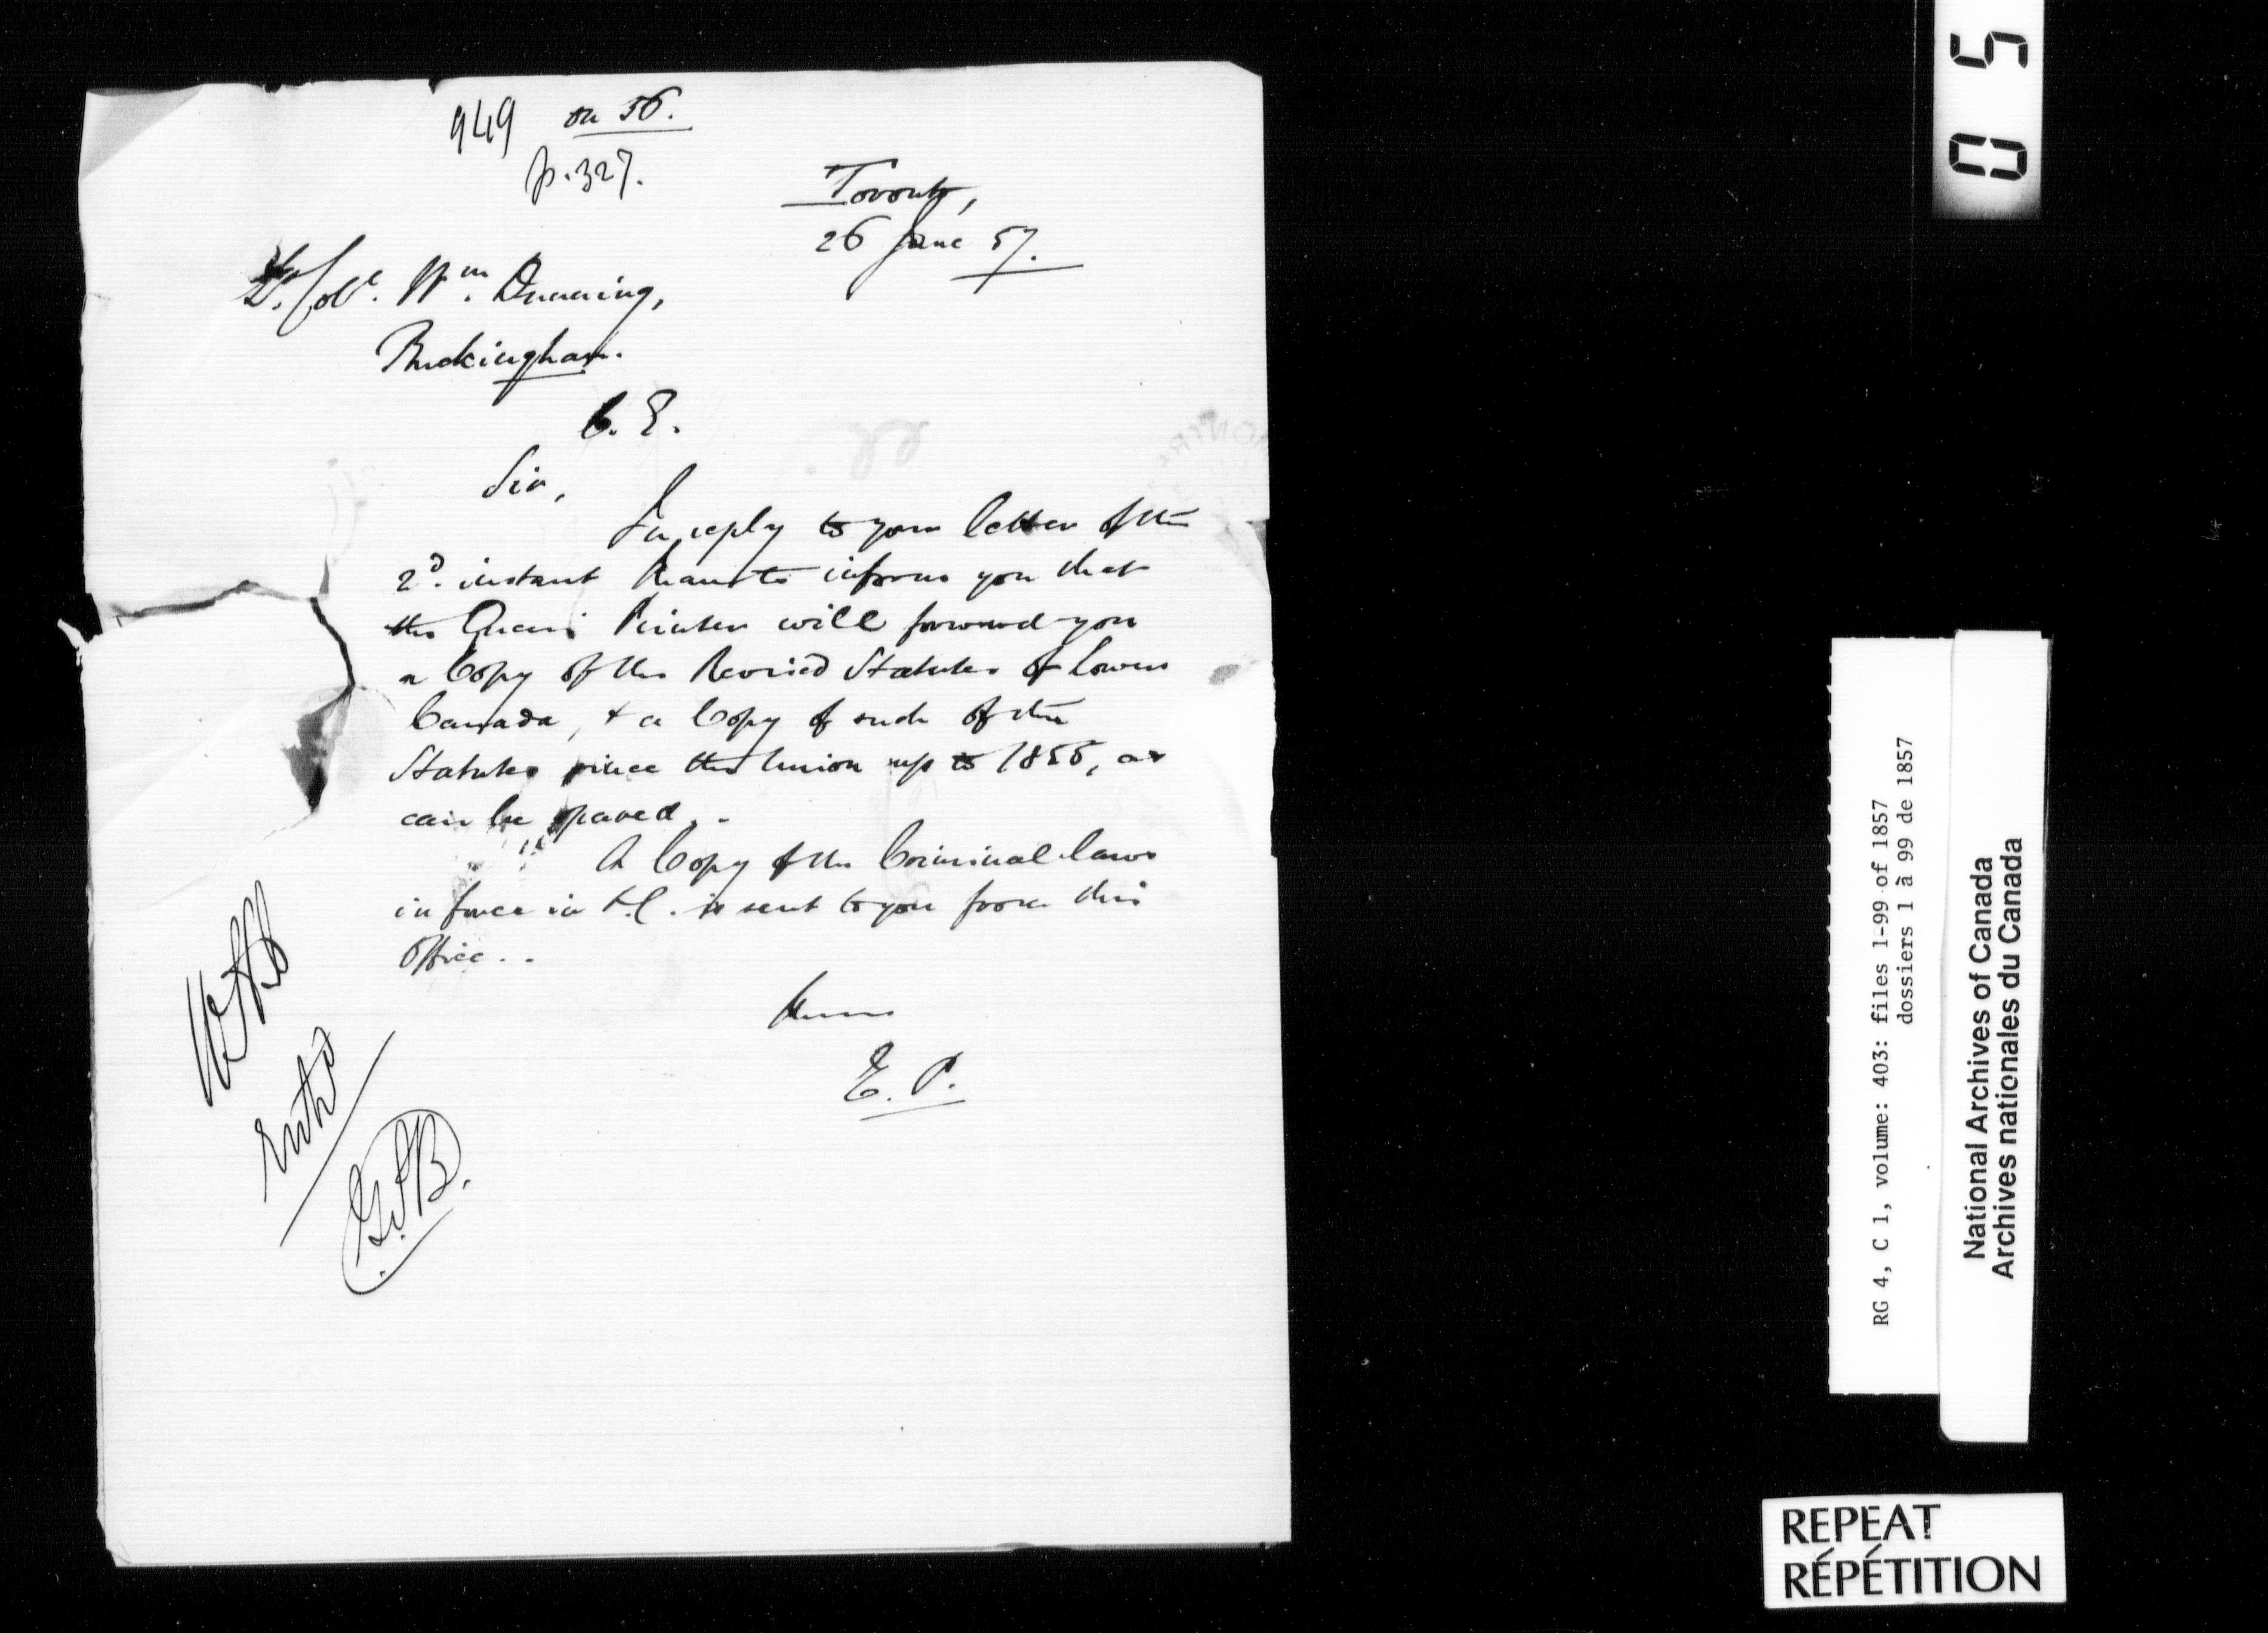 949 on 56.
p. 327.
Toronto,
26 June 57.
Lt. Col. Wm. Dunning,
Buckingham.
C. E.
Sir,
In reply to your letter of the
2d. instant I have to inform you that
the Queen's Printer will forward you
a Copy of the Revised Statutes of Lower
Canada, & a Copy of such of the
Statutes since the Union up to 1856, as
can be spared. -
A Copy of the Criminal Laws
in force in L.C. is sent to you from this
Office. -
E. P.
RG 4, C 1, volume: 403: files 1-99 of 1857
dossiers 1 à 99 de 1857
National Archives of Canada
Archives nationales du Canada
05
REPEAT
RÉPÉTITION